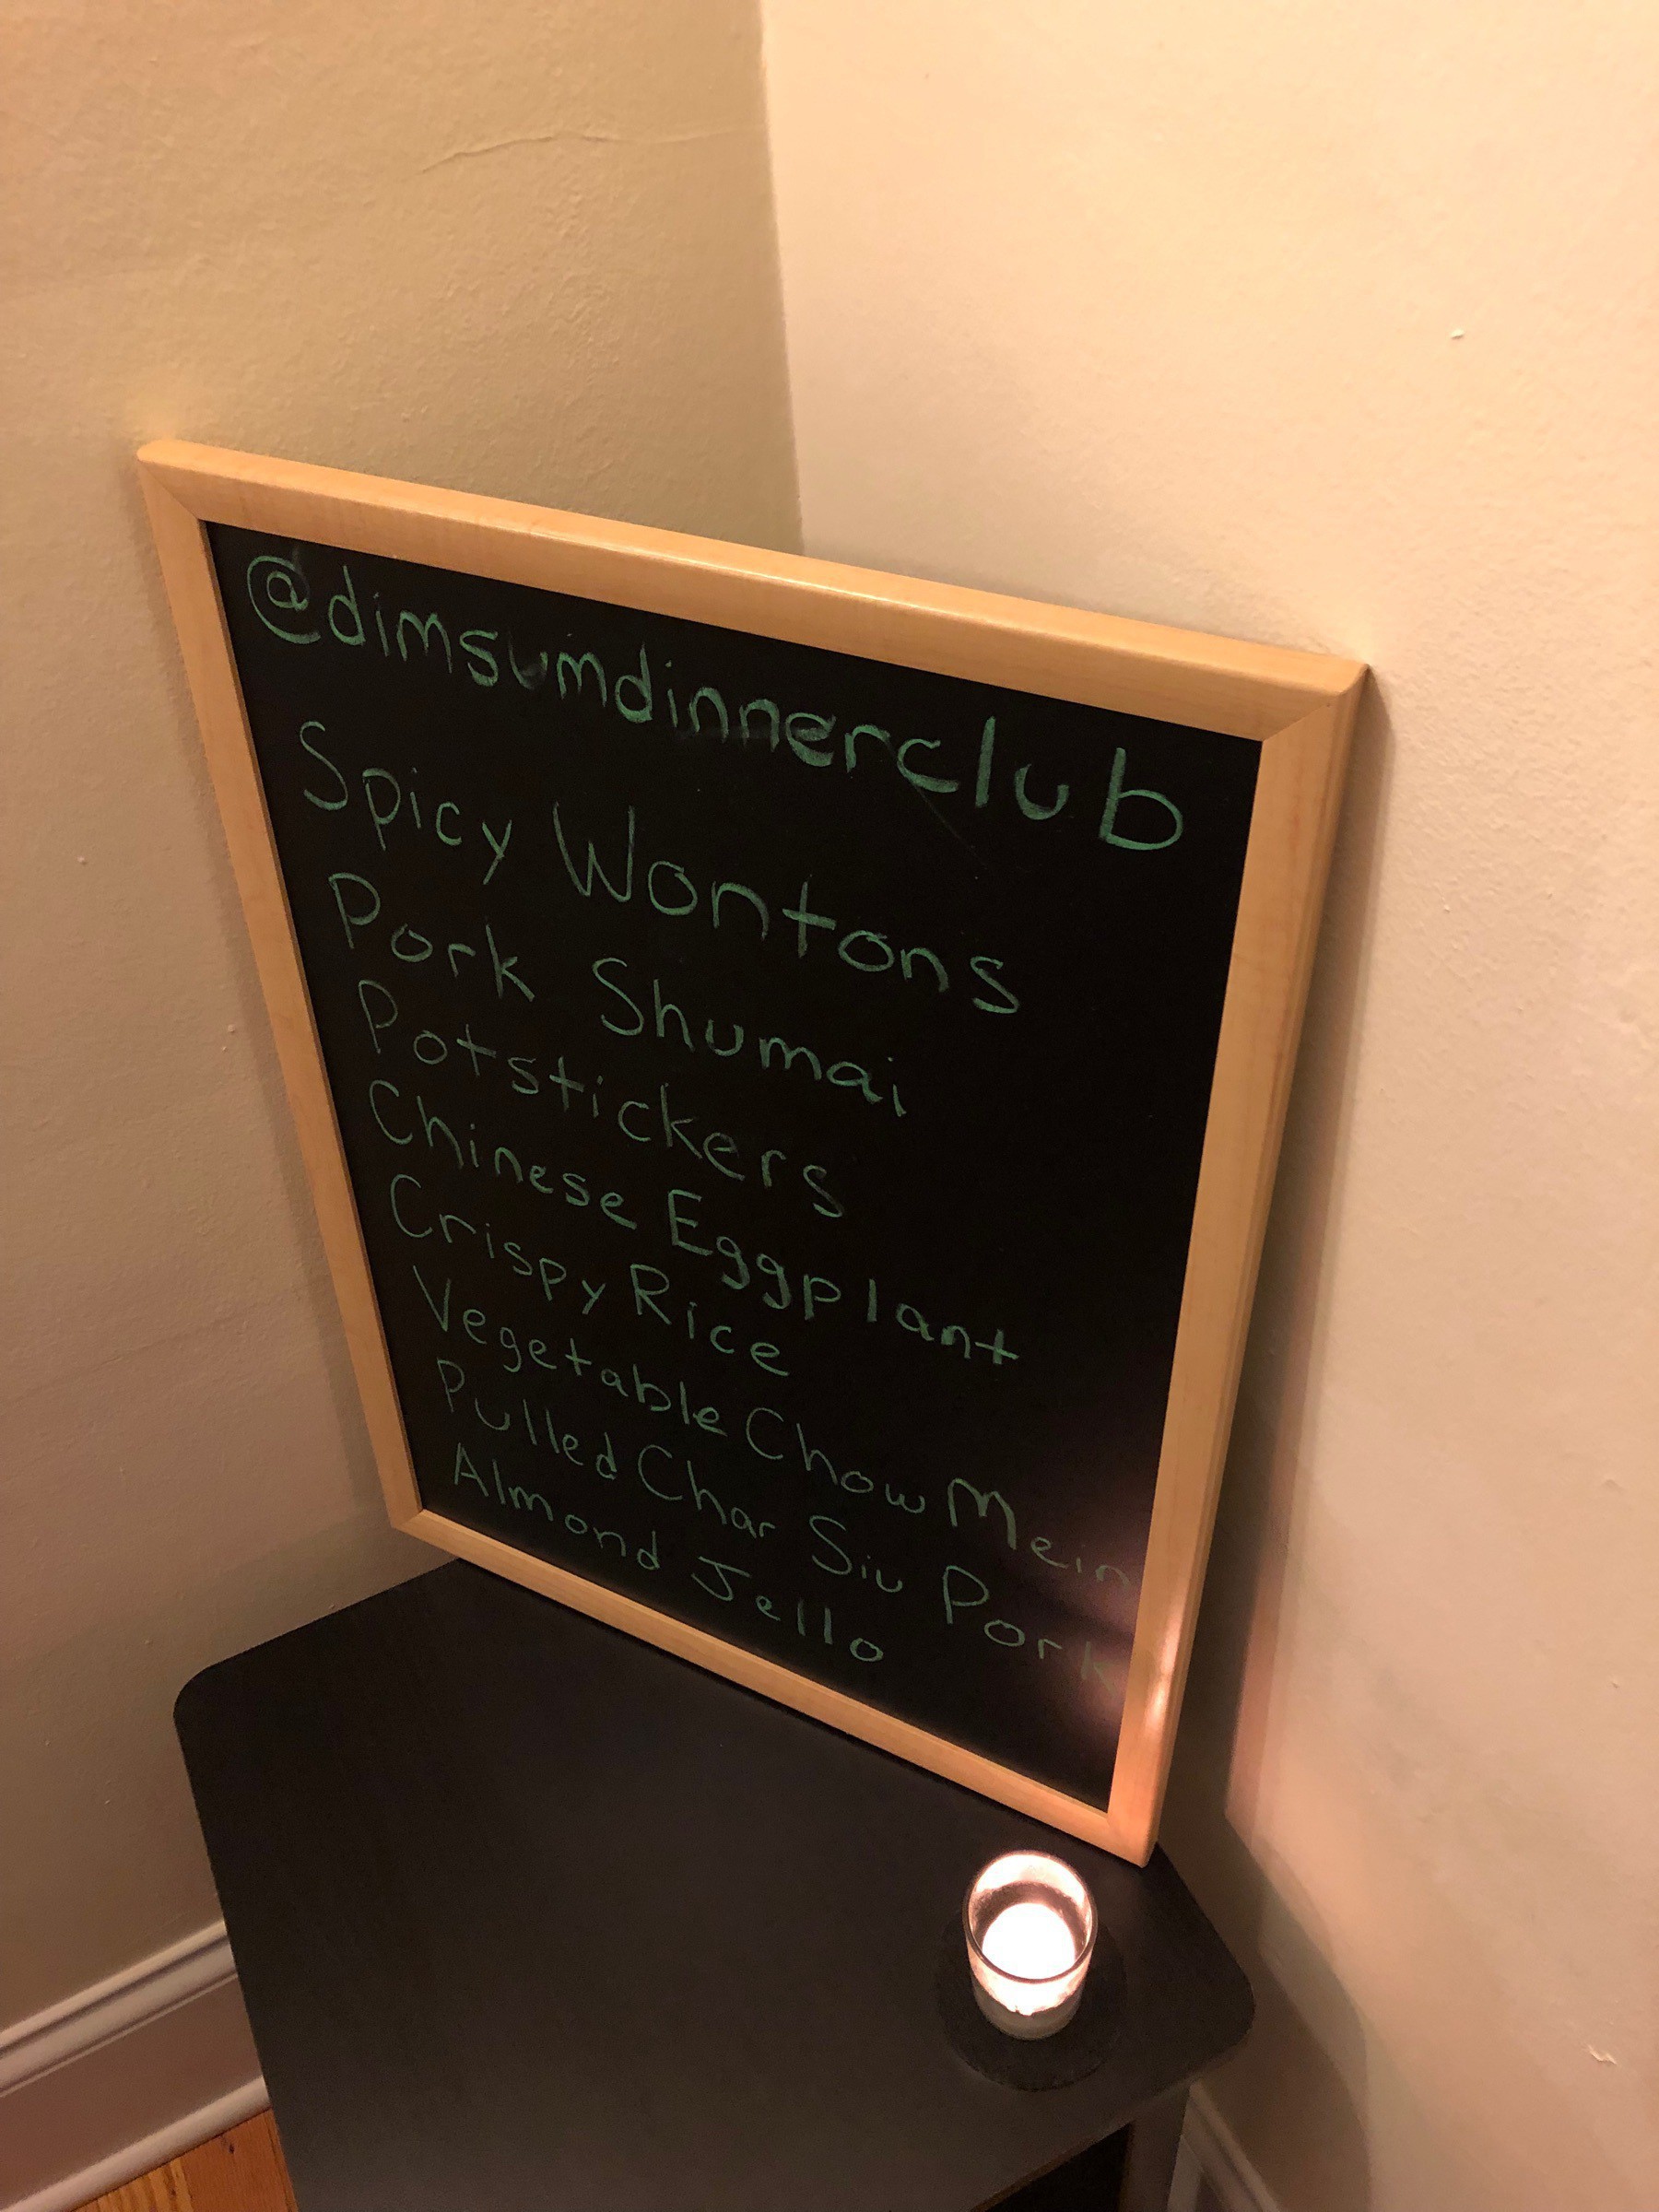 @dimsumdinnerclub
Spicy Wontons
Pork Shumai
Potstickers
Chinese Eggplant
Crispy Rice
Vegetable Chow Mein
Pulled Char Siu Pork
Almond Jello